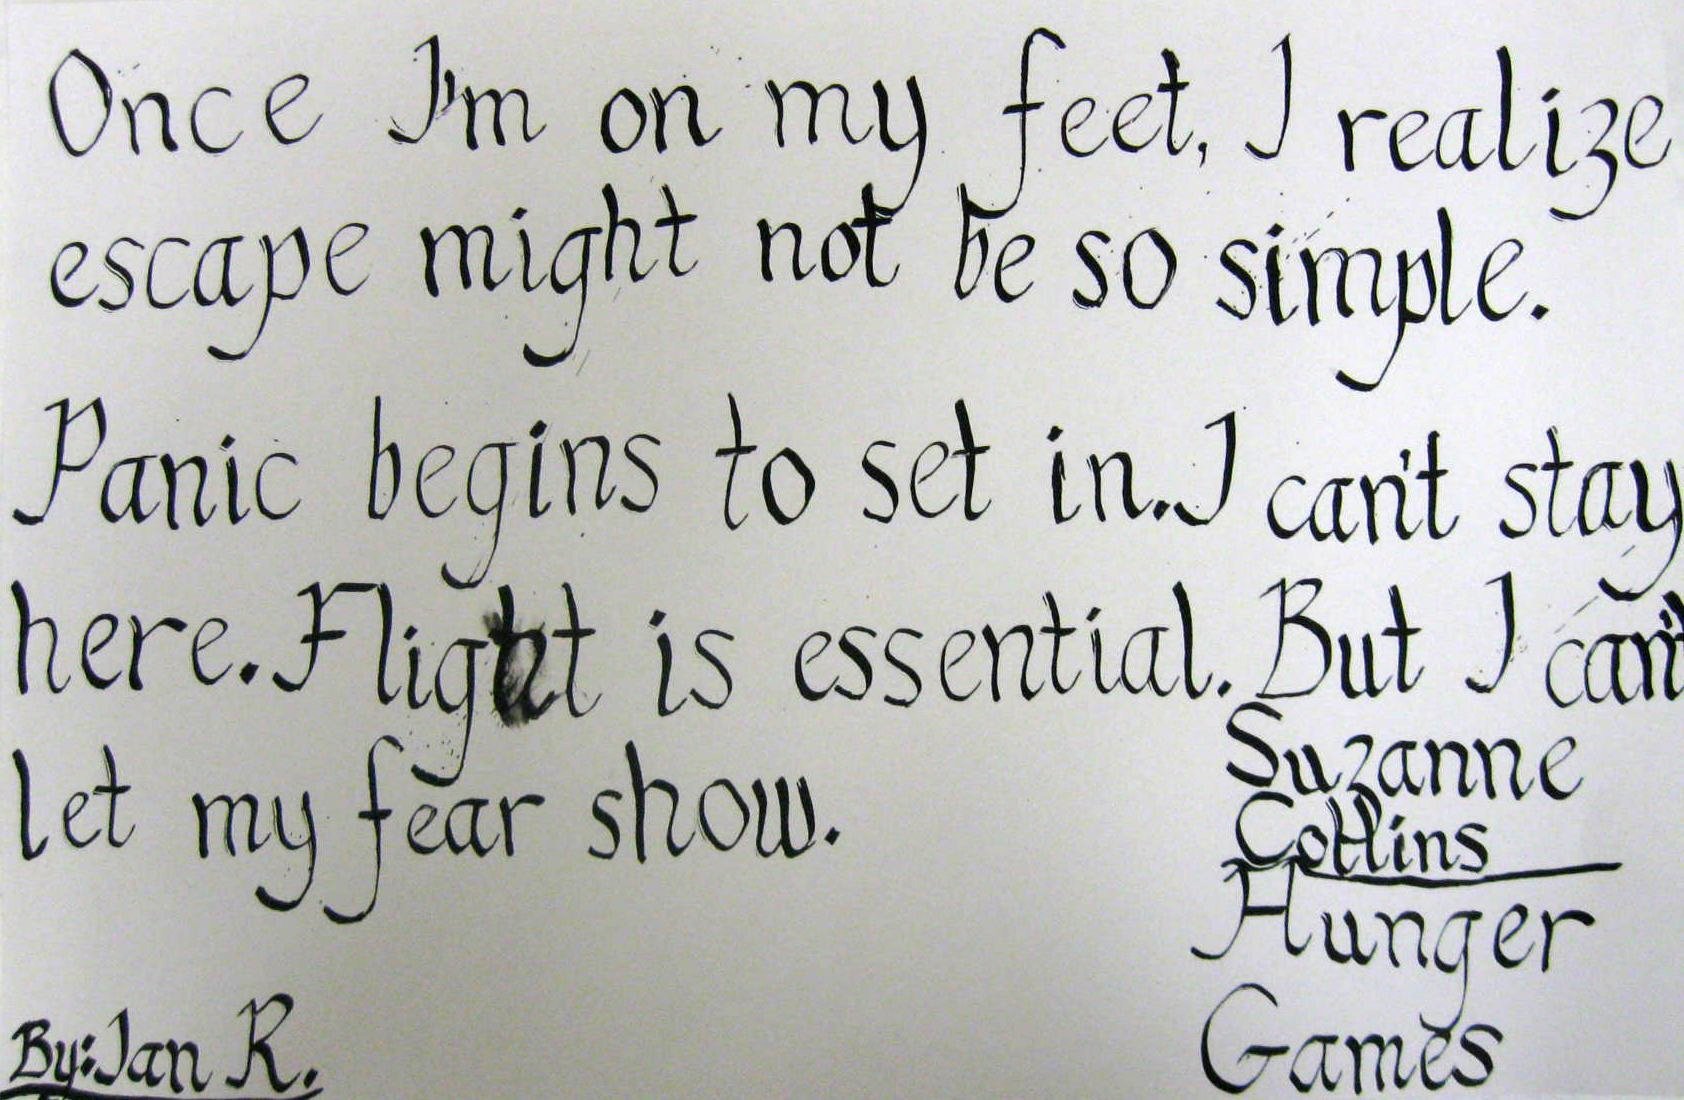 Once I'm on my feet, I realize
escape might not be so simple.
Panic begins to set in. I can't stay
here. Flight is essential. But I can't
let my fear show.
Suzanne
Collins
Hunger
Games
By: Ian R.